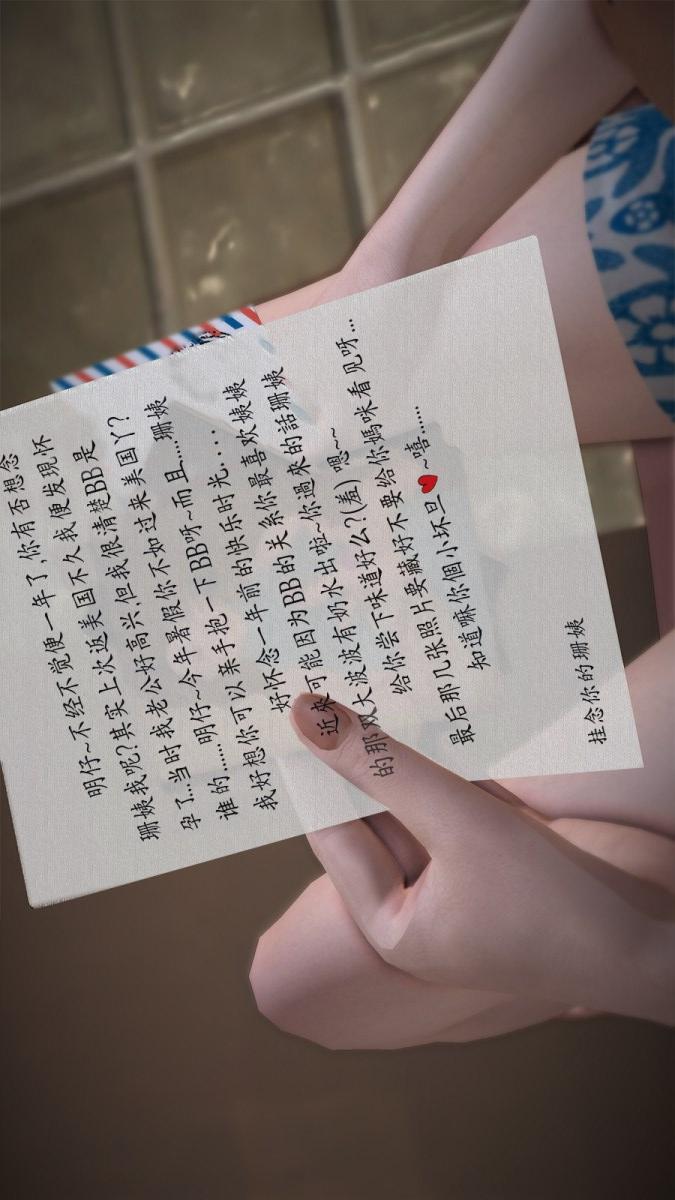 明仔~不经不觉便一年了,你有否想念
珊姨我呢?其实上次返美国不久我便发現怀
孕了...当时我老公好高兴,但我很清楚BB是
谁的......明仔~今年暑假你不如过来美国丫?
我好想你可以亲手抱一下BB呀~而且.....珊姨
好怀念一年前的快乐时光....
近來可能因为BB的关系你最喜欢姨姨
的那双大波波有奶水出啦~你過来的話珊姨
给你尝下味道好么?(羞) 嗯~~
最后那几张照片要藏好不要给你媽咪看見呀...
知道嘛你個小坏旦~嘻.....
挂念你的珊姨